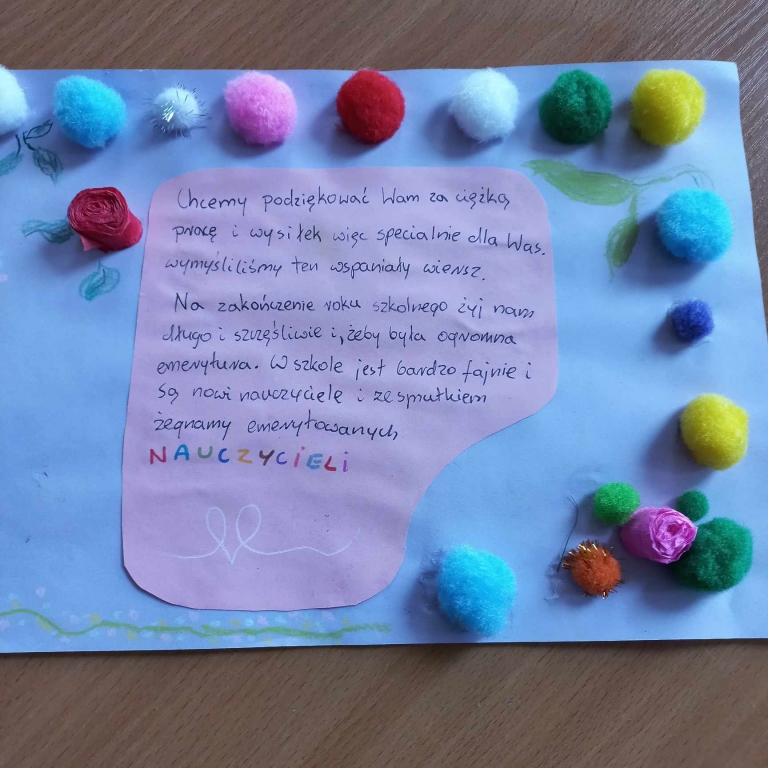 Chcemy podziękować Wam za ciężką
pracę i wysiłek więc specialnie dla Was.
wymyśliliśmy ten wspaniały wiersz.
Na zakończenie roku szkolnego żyj nam
długo i szczęśliwie i, żeby była ogromna
emerytura. W szkole jest bardzo fajnie i
są nowi nauczyciele i ze smutkiem
żegnamy emerytowanych
NAUCZYCIELI